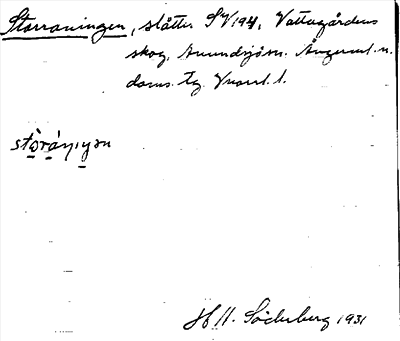 Storraningen, slåtter SV194, Vattugårdens
skog, Anundsjö sn. Ångerml. n.
doms. tg. Vnorrl. l.
stòrán̥iŋən
H H. Söderberg 1931